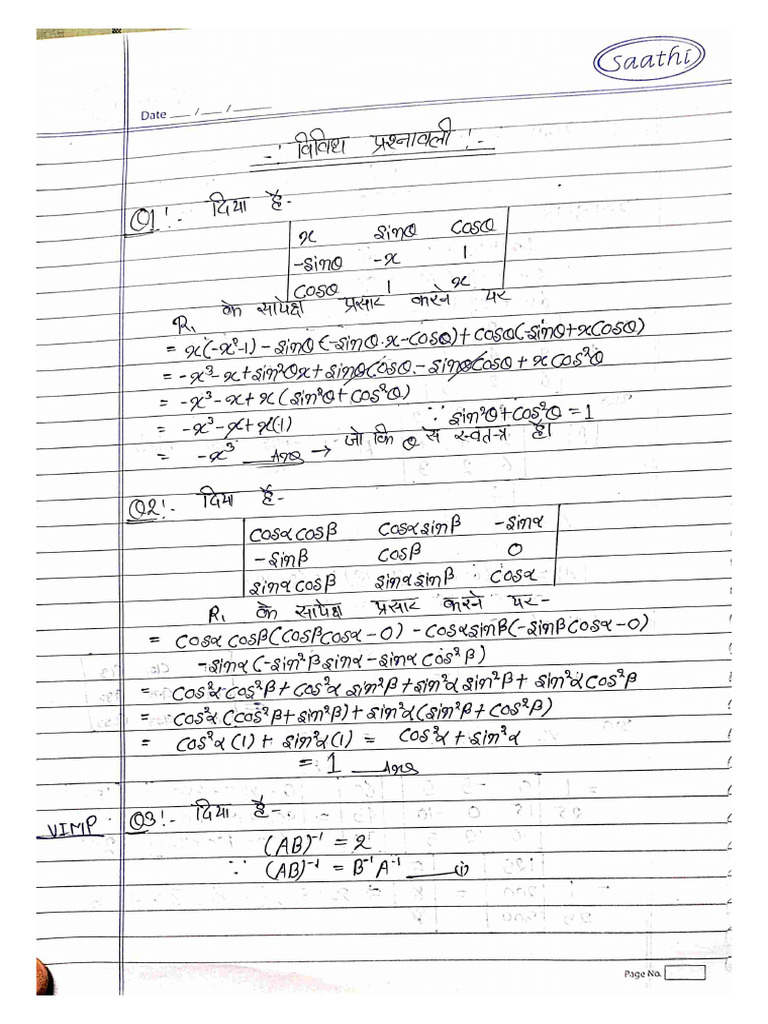 Saathi
Date __/__/____
-: विविध प्रश्नावली :-
Q1:- दिया है-
x sinθ cosθ
-sinθ -x 1
cosθ 1 x
R₁ के सापेक्ष प्रसार करने पर
= x(-x²-1) - sinθ(-sinθ·x-cosθ) + cosθ(-sinθ+xcosθ)
= -x³-x+sin²θx+sinθcosθ-sinθcosθ+xcos²θ
= -x³-x+x(sin²θ+cos²θ)
= -x³-x+x(1) ∵ sin²θ+cos²θ=1
= -x³ Ans → जो कि θ से स्वतन्त्र है।
Q2:- दिया है-
cosαcosβ cosαsinβ -sinα
-sinβ cosβ 0
sinαcosβ sinαsinβ cosα
R₁ के सापेक्ष प्रसार करने पर-
= cosαcosβ(cosβcosα-0) - cosαsinβ(-sinβcosα-0)
-sinα(-sin²βsinα-sinαcos²β)
= cos²αcos²β+cos²αsin²β+sin²αsin²β+sin²αcos²β
= cos²α(cos²β+sin²β)+sin²α(sin²β+cos²β)
= cos²α(1)+sin²α(1) = cos²α+sin²α
= 1 Ans
VIMP Q3:- दिया है-
(AB)⁻¹ = 2
∵ (AB)⁻¹ = B⁻¹A⁻¹ ___(i)
Page No.